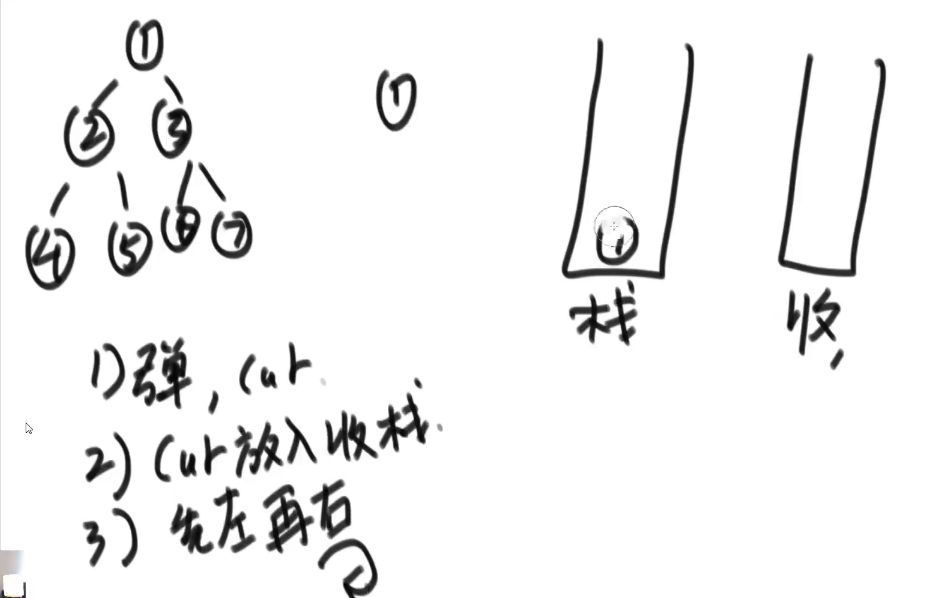 1
2 3
4 5 6 7
1
1
栈
收,
1) 弹, cur
2) cur 放入收栈.
3) 先左再右